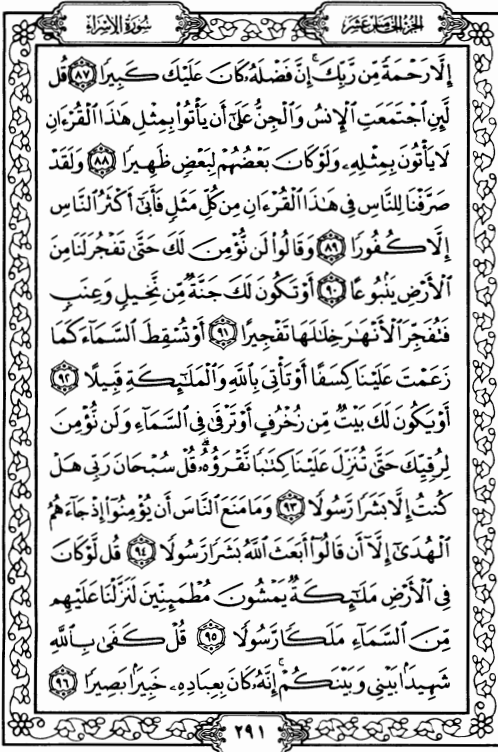 سُورَةُ الإِسْرَاءِ
الجُزْءُ الخَامِسَ عَشَرَ
إِلَّا رَحْمَةً مِّن رَّبِّكَ ۚ إِنَّ فَضْلَهُۥ كَانَ عَلَيْكَ كَبِيرًا ﴿٨٧﴾ قُل
لَّئِنِ ٱجْتَمَعَتِ ٱلْإِنسُ وَٱلْجِنُّ عَلَىٰٓ أَن يَأْتُوا۟ بِمِثْلِ هَـٰذَا ٱلْقُرْءَانِ
لَا يَأْتُونَ بِمِثْلِهِۦ وَلَوْ كَانَ بَعْضُهُمْ لِبَعْضٍ ظَهِيرًا ﴿٨٨﴾ وَلَقَدْ
صَرَّفْنَا لِلنَّاسِ فِى هَـٰذَا ٱلْقُرْءَانِ مِن كُلِّ مَثَلٍ فَأَبَىٰٓ أَكْثَرُ ٱلنَّاسِ
إِلَّا كُفُورًا ﴿٨٩﴾ وَقَالُوا۟ لَن نُّؤْمِنَ لَكَ حَتَّىٰ تَفْجُرَ لَنَا مِنَ
ٱلْأَرْضِ يَنۢبُوعًا ﴿٩٠﴾ أَوْ تَكُونَ لَكَ جَنَّةٌ مِّن نَّخِيلٍ وَعِنَبٍ
فَتُفَجِّرَ ٱلْأَنْهَـٰرَ خِلَـٰلَهَا تَفْجِيرًا ﴿٩١﴾ أَوْ تُسْقِطَ ٱلسَّمَآءَ كَمَا
زَعَمْتَ عَلَيْنَا كِسَفًا أَوْ تَأْتِىَ بِٱللَّهِ وَٱلْمَلَـٰٓئِكَةِ قَبِيلًا ﴿٩٢﴾
أَوْ يَكُونَ لَكَ بَيْتٌ مِّن زُخْرُفٍ أَوْ تَرْقَىٰ فِى ٱلسَّمَآءِ وَلَن نُّؤْمِنَ
لِرُقِيِّكَ حَتَّىٰ تُنَزِّلَ عَلَيْنَا كِتَـٰبًا نَّقْرَؤُهُۥ ۗ قُلْ سُبْحَانَ رَبِّى هَلْ
كُنتُ إِلَّا بَشَرًا رَّسُولًا ﴿٩٣﴾ وَمَا مَنَعَ ٱلنَّاسَ أَن يُؤْمِنُوٓا۟ إِذْ جَآءَهُمُ
ٱلْهُدَىٰٓ إِلَّآ أَن قَالُوٓا۟ أَبَعَثَ ٱللَّهُ بَشَرًا رَّسُولًا ﴿٩٤﴾ قُل لَّوْ كَانَ
فِى ٱلْأَرْضِ مَلَـٰٓئِكَةٌ يَمْشُونَ مُطْمَئِنِّينَ لَنَزَّلْنَا عَلَيْهِم
مِّنَ ٱلسَّمَآءِ مَلَكًا رَّسُولًا ﴿٩٥﴾ قُلْ كَفَىٰ بِٱللَّهِ
شَهِيدًۢا بَيْنِى وَبَيْنَكُمْ ۚ إِنَّهُۥ كَانَ بِعِبَادِهِۦ خَبِيرًۢا بَصِيرًا ﴿٩٦﴾
٢٩١